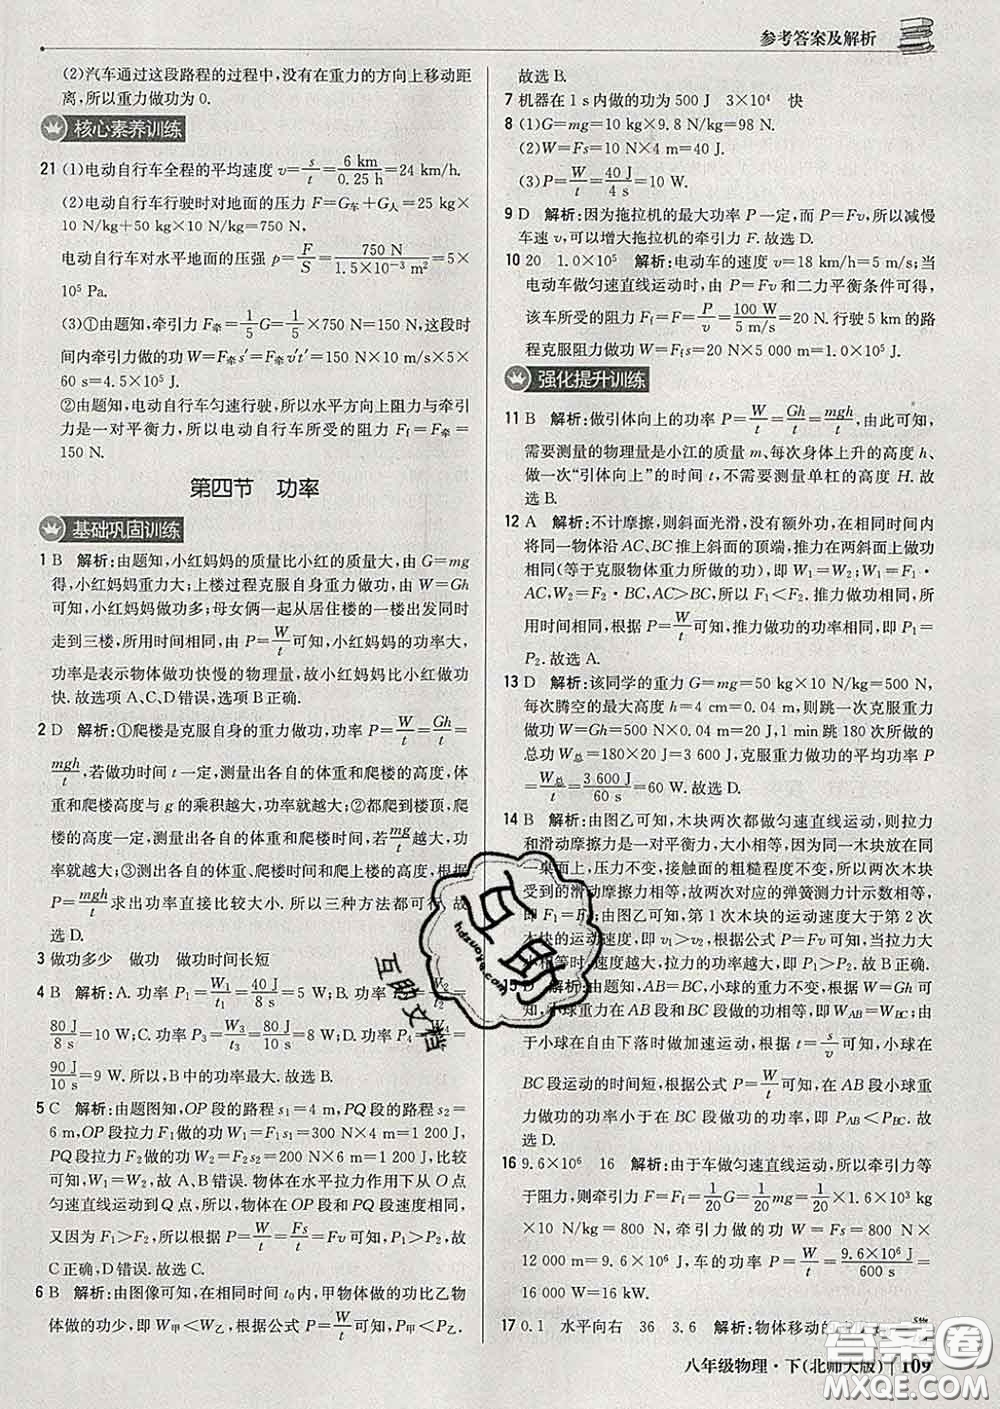 参考答案及解析
(2)汽车通过这段路程的过程中,没有在重力的方向上移动距
离,所以重力做功为0.
核心素养训练
21 (1)电动自行车全程的平均速度 v=s/t=6 km/0.25 h=24 km/h.
(2)电动自行车行驶时对地面的压力 F=G车+G人=25 kg
×10 N/kg+50 kg×10 N/kg=750 N,
电动自行车对水平地面的压强 p=F/S=750 N/1.5×10⁻³ m²=5×
10⁵ Pa.
(3)①由题知,牵引力 F牵=1/5G=1/5×750 N=150 N,这段时
间内牵引力做的功 W=F牵s′=F牵v′t′=150 N×10 m/s×5×
60 s=4.5×10⁵ J.
②由题知,电动自行车匀速行驶,所以水平方向上阻力与牵引
力是一对平衡力,所以电动自行车所受的阻力 Ff=F牵=
150 N.
第四节 功率
基础巩固训练
1 B 解析:由题知,小红妈妈的质量比小红的质量大,由 G=mg
得,小红妈妈重力大;上楼过程克服自身重力做功,由 W=Gh
可知,小红妈妈做功多;母女俩一起从居住楼的一楼出发同时
走到三楼,所用时间相同,由 P=W/t可知,小红妈妈的功率大,
功率是表示物体做功快慢的物理量,故小红妈妈比小红做功
快.故选项 A、C、D 错误,选项 B 正确.
2 D 解析:①爬楼是克服自身的重力做功,功率 P=W/t=Gh/t=
mgh/t,若做功时间 t 一定,测量出各自的体重和爬楼的高度,体
重和爬楼高度与 g 的乘积越大,功率就越大;②都爬到楼顶,爬
楼的高度一定,测量出各自的体重和爬楼时间,若mg/t越大,功率
就越大;③测量出各自的体重、爬楼时间和爬楼高度,根据
P=mgh/t求出功率直接比较大小.所以三种方法都可行.故
选 D.
3 做功多少 做功 做功时间长短
4 B 解析:A. 功率 P₁=W₁/t₁=40 J/8 s=5 W;B. 功率 P₂=W₂/t₂=
80 J/8 s=10 W;C. 功率 P₃=W₃/t₃=80 J/10 s=8 W;D. 功率
90 J/10 s=9 W. 所以,B 中的功率最大.故选 B.
5 C 解析:由题图知,OP 段的路程 s₁=4 m,PQ 段的路程 s₂=
6 m,OP 段拉力 F₁ 做的功 W₁=F₁s₁=300 N×4 m=1 200 J,
PQ 段拉力 F₂ 做的功 W₂=F₂s₂=200 N×6 m=1 200 J,比较
可知,W₁=W₂,故 A、B 错误.物体在水平拉力作用下从 O 点
匀速直线运动到 Q 点,所以,物体在 OP 段和 PQ 段速度相同,
又因为 F₁>F₂,所以根据 P=W/t=Fs/t=Fv 可知,P₁>P₂,故
C 正确,D 错误.故选 C.
6 B 解析:由图像可知,在相同时间 t₀内,甲物体做的功比乙物
体做的功少,即 W甲<W乙,根据 P=W/t可知,P甲<P乙.
故选 B.
7 机器在 1 s 内做的功为 500 J 3×10⁴ 快
8 (1)G=mg=10 kg×9.8 N/kg=98 N.
(2)W=Fs=10 N×4 m=40 J.
(3)P=W/t=40 J/4 s=10 W.
9 D 解析:因为拖拉机的最大功率 P 一定,而 P=Fv,所以减慢
车速 v,可以增大拖拉机的牵引力 F.故选 D.
10 20 1.0×10⁵ 解析:电动车的速度 v=18 km/h=5 m/s;当
电动车做匀速直线运动时,由 P=Fv 和二力平衡条件可得,
该车所受的阻力 Ff=F=P/v=100 W/5 m/s=20 N. 行驶 5 km 的路
程克服阻力做功 W=Ffs=20 N×5 000 m=1.0×10⁵ J.
强化提升训练
11 B 解析:做引体向上的功率 P=W/t=Gh/t=mgh/t,由此可知,
需要测量的物理量是小江的质量 m、每次身体上升的高度 h、
做一次“引体向上”的时间 t,不需要测量单杠的高度 H. 故
选 B.
12 A 解析:不计摩擦,则斜面光滑,没有额外功,在相同时间内
将同一物体沿 AC、BC 推上斜面的顶端,推力在两斜面上做功
相同(等于克服物体重力所做的功),即 W₁=W₂;W₁=F₁·
AC,W₂=F₂·BC,AC>BC,所以 F₁<F₂.推力做功相同,所
用时间相同,根据 P=W/t可知,推力做功的功率相同,即 P₁=
P₂.故选 A.
13 D 解析:该同学的重力 G=mg=50 kg×10 N/kg=500 N,
每次腾空的最大高度 h=4 cm=0.04 m,则跳一次克服重力
做功 W=Gh=500 N×0.04 m=20 J,1 min 跳 180 次所做的
总功 W总=180×20 J=3 600 J,克服重力做功的平均功率 P
=W总/t=3 600 J/60 s=60 W.故选 D.
14 B 解析:由图乙可知,木块两次都做匀速直线运动,则拉力
和滑动摩擦力是一对平衡力,大小相等;因为同一木块放在
同一桌面上,压力不变,接触面的粗糙程度不变,所以两次木块
受到的滑动摩擦力相等,故两次对应的弹簧测力计示数相等,
即 F₁=F₂;由图乙可知,第 1 次木块的运动速度大于第 2 次
木块的运动速度,即 v₁>v₂,根据公式 P=Fv 可知,在力大小
相等时,速度大的功率大,所以 P₁>P₂.故 B 正确.
15 D 解析:由题知,AB=BC,小球重力不变,根据 W=Gh 可
知,小球重力在 AB 段和 BC 段做的功相等,即 WAB=WBC;由
于小球在自由下落时做加速运动,根据公式 t=s/v可知,小球在
BC 段运动的时间短,根据公式 P=W/t可知,在 AB 段小球
重力做功的功率小于在 BC 段做功的功率,即 PAB<PBC. 故
选 D.
16 9.6×10⁶ 16 解析:由于车做匀速直线运动,所以牵引力等
于阻力,则牵引力 F=Ff=1/20G=1/20mg=1/20×1.6×10³ kg
×10 N/kg=800 N,牵引力做的功 W=Fs=800 N×
12 000 m=9.6×10⁶ J,车的功率 P=W/t=9.6×10⁶ J/600 s=
16 000 W=16 kW.
17 0.1 水平向右 36 3.6 解析:物体移动的
八年级物理·下(北师大版) 109
互助
hdzuoye.com
互助文档
答案圈
MXQE.COM